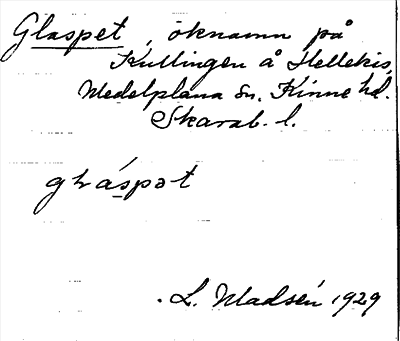 Glaspet, öknamn på
Kullingen å Hellekis,
Medelplana sn. Kinne hd.
Skarab. l.
gláspət
L. Madsén 1929